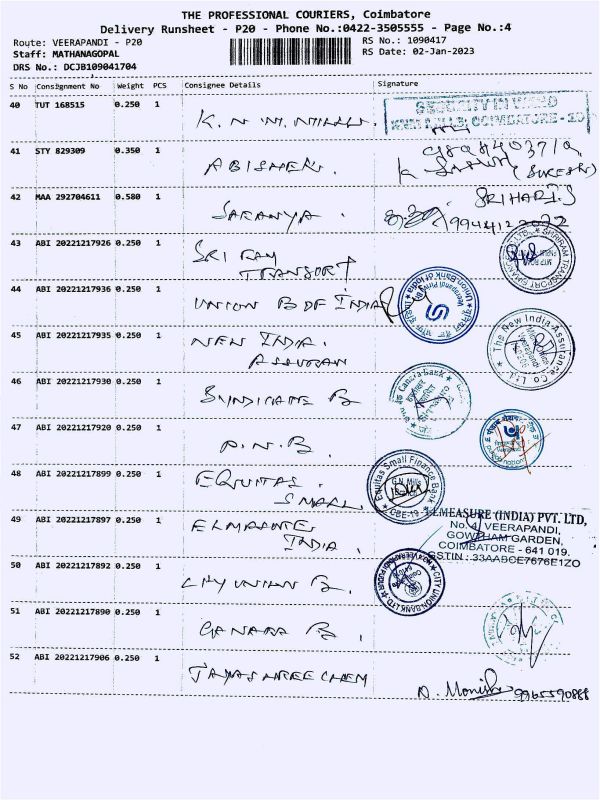 THE PROFESSIONAL COURIERS, Coimbatore
Delivery Runsheet - P20 - Phone No.:0422-3505555 - Page No.:4
Route: VEERAPANDI - P20
RS No.: 1090417
Staff: MATHANAGOPAL
RS Date: 02-Jan-2023
DRS No.: DCJB109041704
S No Consignment No Weight PCS Consignee Details Signature
40 TUT 168515 0.250 1 K.N.M.
SECURITY IN WARD
COIMBATORE
41 STY 829309 0.350 1 ABISHEK.
(SURESH)
42 MAA 292704611 0.580 1 SARANYA .
SRI HARI.S
43 ABI 20221217926 0.250 1 SRI RAM
TRANSORT
SHRIRAM TRANSPORT
44 ABI 20221217936 0.250 1 UNION B OF INDIA
Union Bank of India
45 ABI 20221217935 0.250 1 NEW INDIA.
ASSURAN
The New India Assurance Co. Ltd.
46 ABI 20221217930 0.250 1 SYNDICATE B
Canara bank
47 ABI 20221217920 0.250 1 P.N.B.
48 ABI 20221217899 0.250 1 EQUITAS.
SMALL
Equitas Small Finance Bank
G.N. Mills
Branch
CBE-19
49 ABI 20221217897 0.250 1 ELMAANTE
INDIA.
ELMEASURE (INDIA) PVT. LTD,
No. 4, VEERAPANDI,
GOWTHAM GARDEN,
COIMBATORE - 641 019.
GSTIN : 33AABCE7676E1ZO
50 ABI 20221217892 0.250 1 CITY UNION B.
CITY UNION BANK LTD.
51 ABI 20221217890 0.250 1 CANARA B.
52 ABI 20221217906 0.250 1 JAYASHREE CHEM
D. Monisha 9965590888